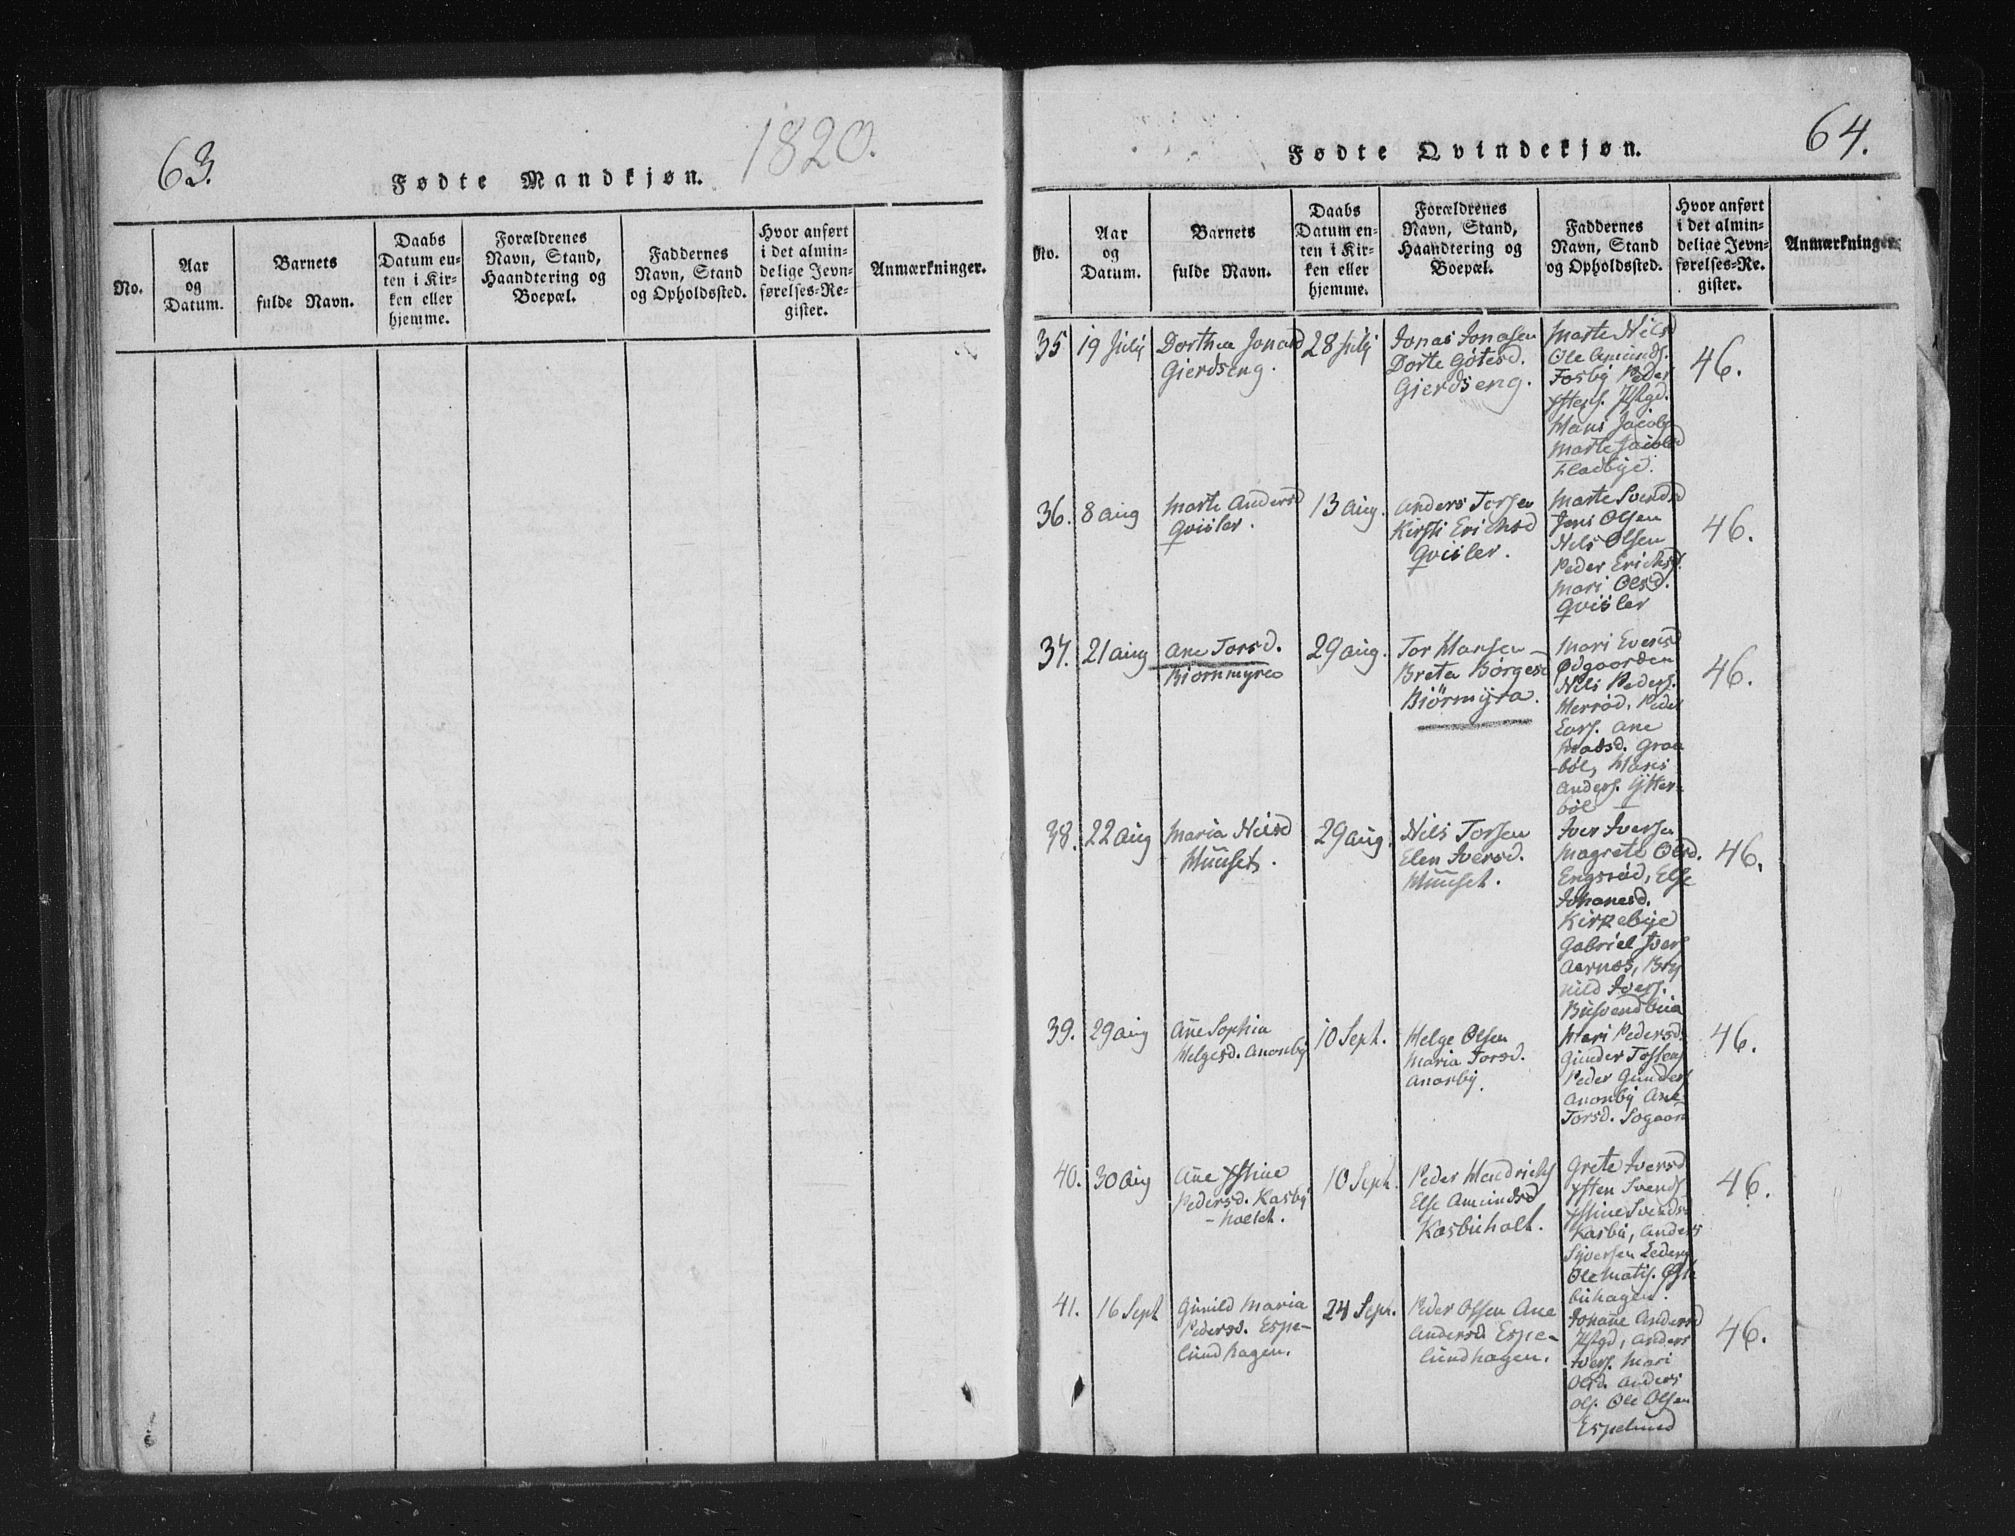 63.
1820.
Fødte Mandkjøn.
No.
Aar
og
Datum.
Barnets
fulde Navn.
Daabs
Datum en-
ten i Kir-
ken eller
hjemme.
Forældrenes
Navn, Stand,
Haandtering og
Boepæl.
Faddernes
Navn, Stand
og Opholdssted.
Hvor anført
i det almin-
delige Jevn-
førelses-Re-
gister.
Anmærkninger.
64.
Fødte Qvindekjøn.
No.
Aar
og
Datum.
Barnets
fulde Navn.
Daabs
Datum en-
ten i Kir-
ken eller
hjemme.
Forældrenes
Navn, Stand,
Haandtering og
Boepæl.
Faddernes
Navn, Stand
og Opholdssted.
Hvor anført
i det almin-
delige Jevn-
førelses-Re-
gister.
Anmærkninger.
35
19 Julij
Dorthea Jonasd
Gierdseng.
28 Julij
Jonas Jonasen
Dorte Götesd.
Gierdseng.
Marte Nilsd
Ole Amunds.
Fosby Peder
Hans Jacobs
Marte Jacobsd
Fladbye.
46.
36.
8 aug
Marte Andersd
Qvisler.
13 aug.
Anders Torsen
Kirsti Erichsd
Qvisler.
Marte Svendsd
Jens Olsen
Nils Olsen
Peder Erichs.
Mari Olsd.
Qvisler
46.
37.
21 aug
Ane Torsd.
Biörnmyra
29 aug.
Tor Hansen
Breta Börgesd
Biörmyra.
Mari Evensd
Ödgaarden
Nils Peders.
Herröd. Peder
Lars. Ane
Graa
-böl, Hans
Anders. Ytter-
böl
46.
38.
22 aug
Maria Nilsd
Huuset.
29 aug.
Nils Torsen
Elen Iversd.
Huuset.
Iver Iversen
Magrete Olsd.
Engeröd, Else
Johanesd.
Kirkebye
Gabriel Ivers
Aarnæs, Bry
nild Ivers.
39.
29 aug
Ane Sophia
Helgesd. Anonby
10 Sept.
Helge Olsen
Maria Torsd.
Anonby.
Mari Pedersd.
Gunder Tostens
Peder Gunders
Anonby Ane
Torsd. Sogaard
46.
40.
30 aug
Ane Kstine
Pedersd. Kasby
-holtet.
10 Sept.
Peder Hendrichs
Else Amundsd
Kasbuholt.
Grete Iversd
Svends
Kstine Svendsd
Kasby, Anders
Syversen
Ole Matis.
buhagen.
46.
41.
16 Sept
Gunild Maria
Pedersd. Espe-
lundhagen.
24 Sept.
Peder Olsen Ane
Andersd Espe-
lundhagen.
Johane Andersd
Anders
Ivers. Mari
Olsd. Anders
Ols. Ole Olsen
Espelund
46.